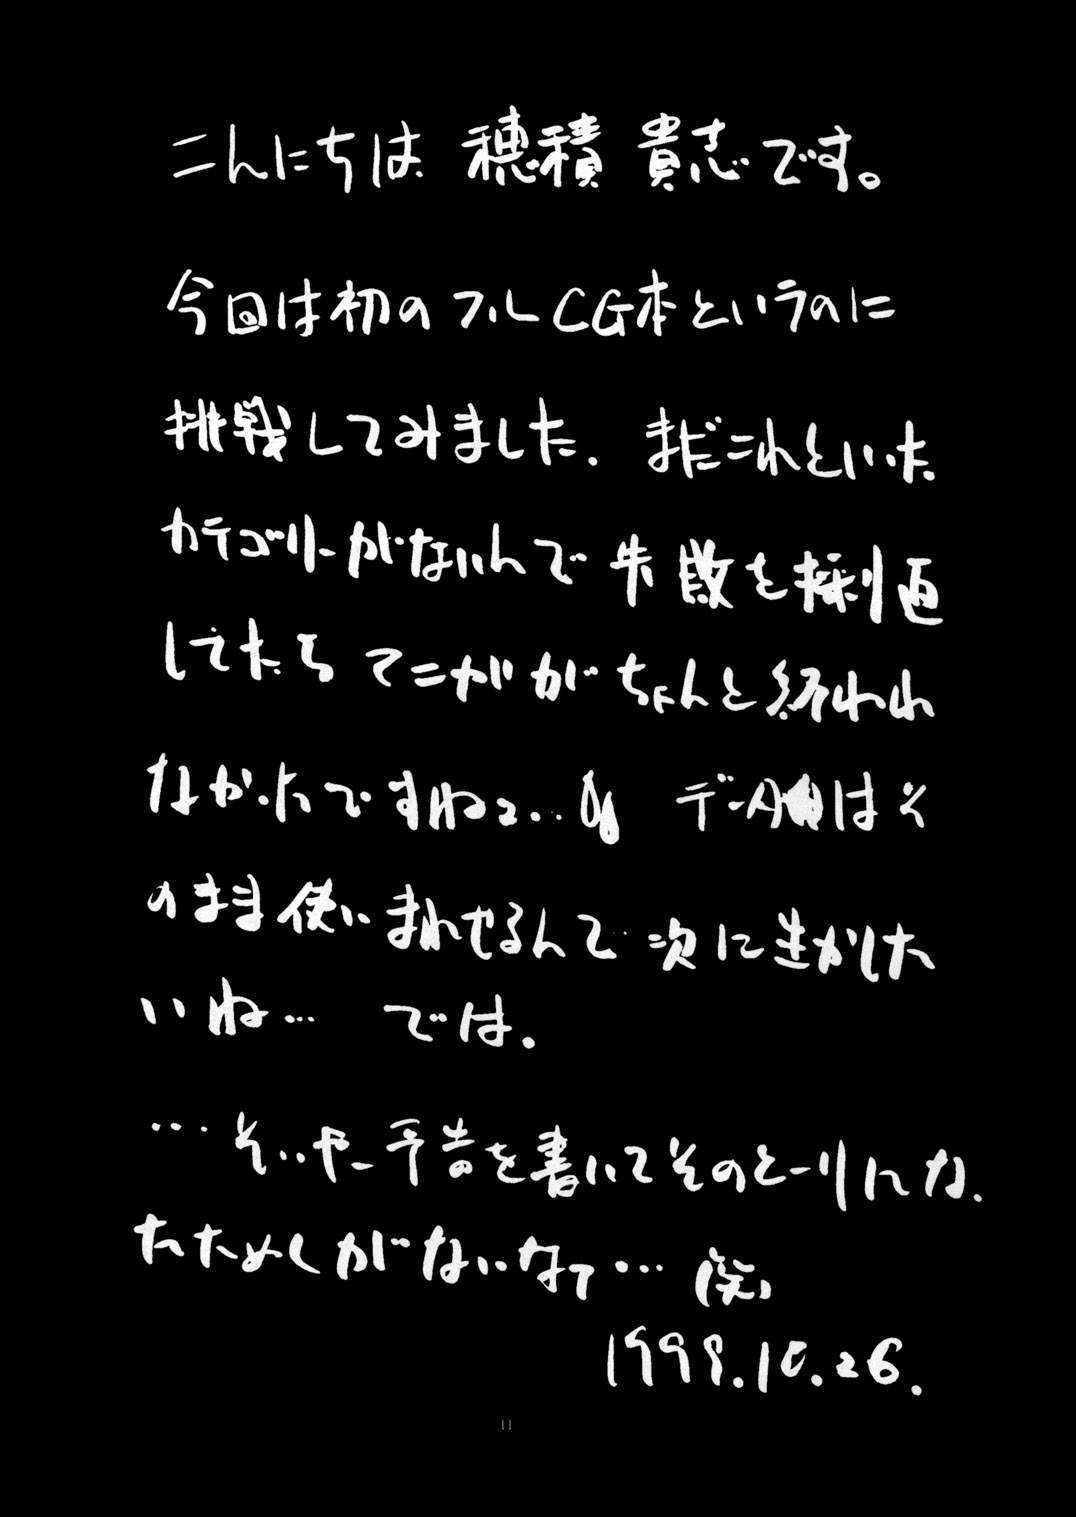 こんにちは 穂積 貴志です。
今回は初のフルCG本というのに
挑戦してみました. まだこれといった
カテゴリーがないんで 失敗を
してたら ちゃんと終われ
なかったですねェ… データは そ
のまま使いまわせるんで 次に生かした
いね… では.
… そいやー予告を書いてそのとーりになっ
たためしがないなァ… (笑)
10.26.
11